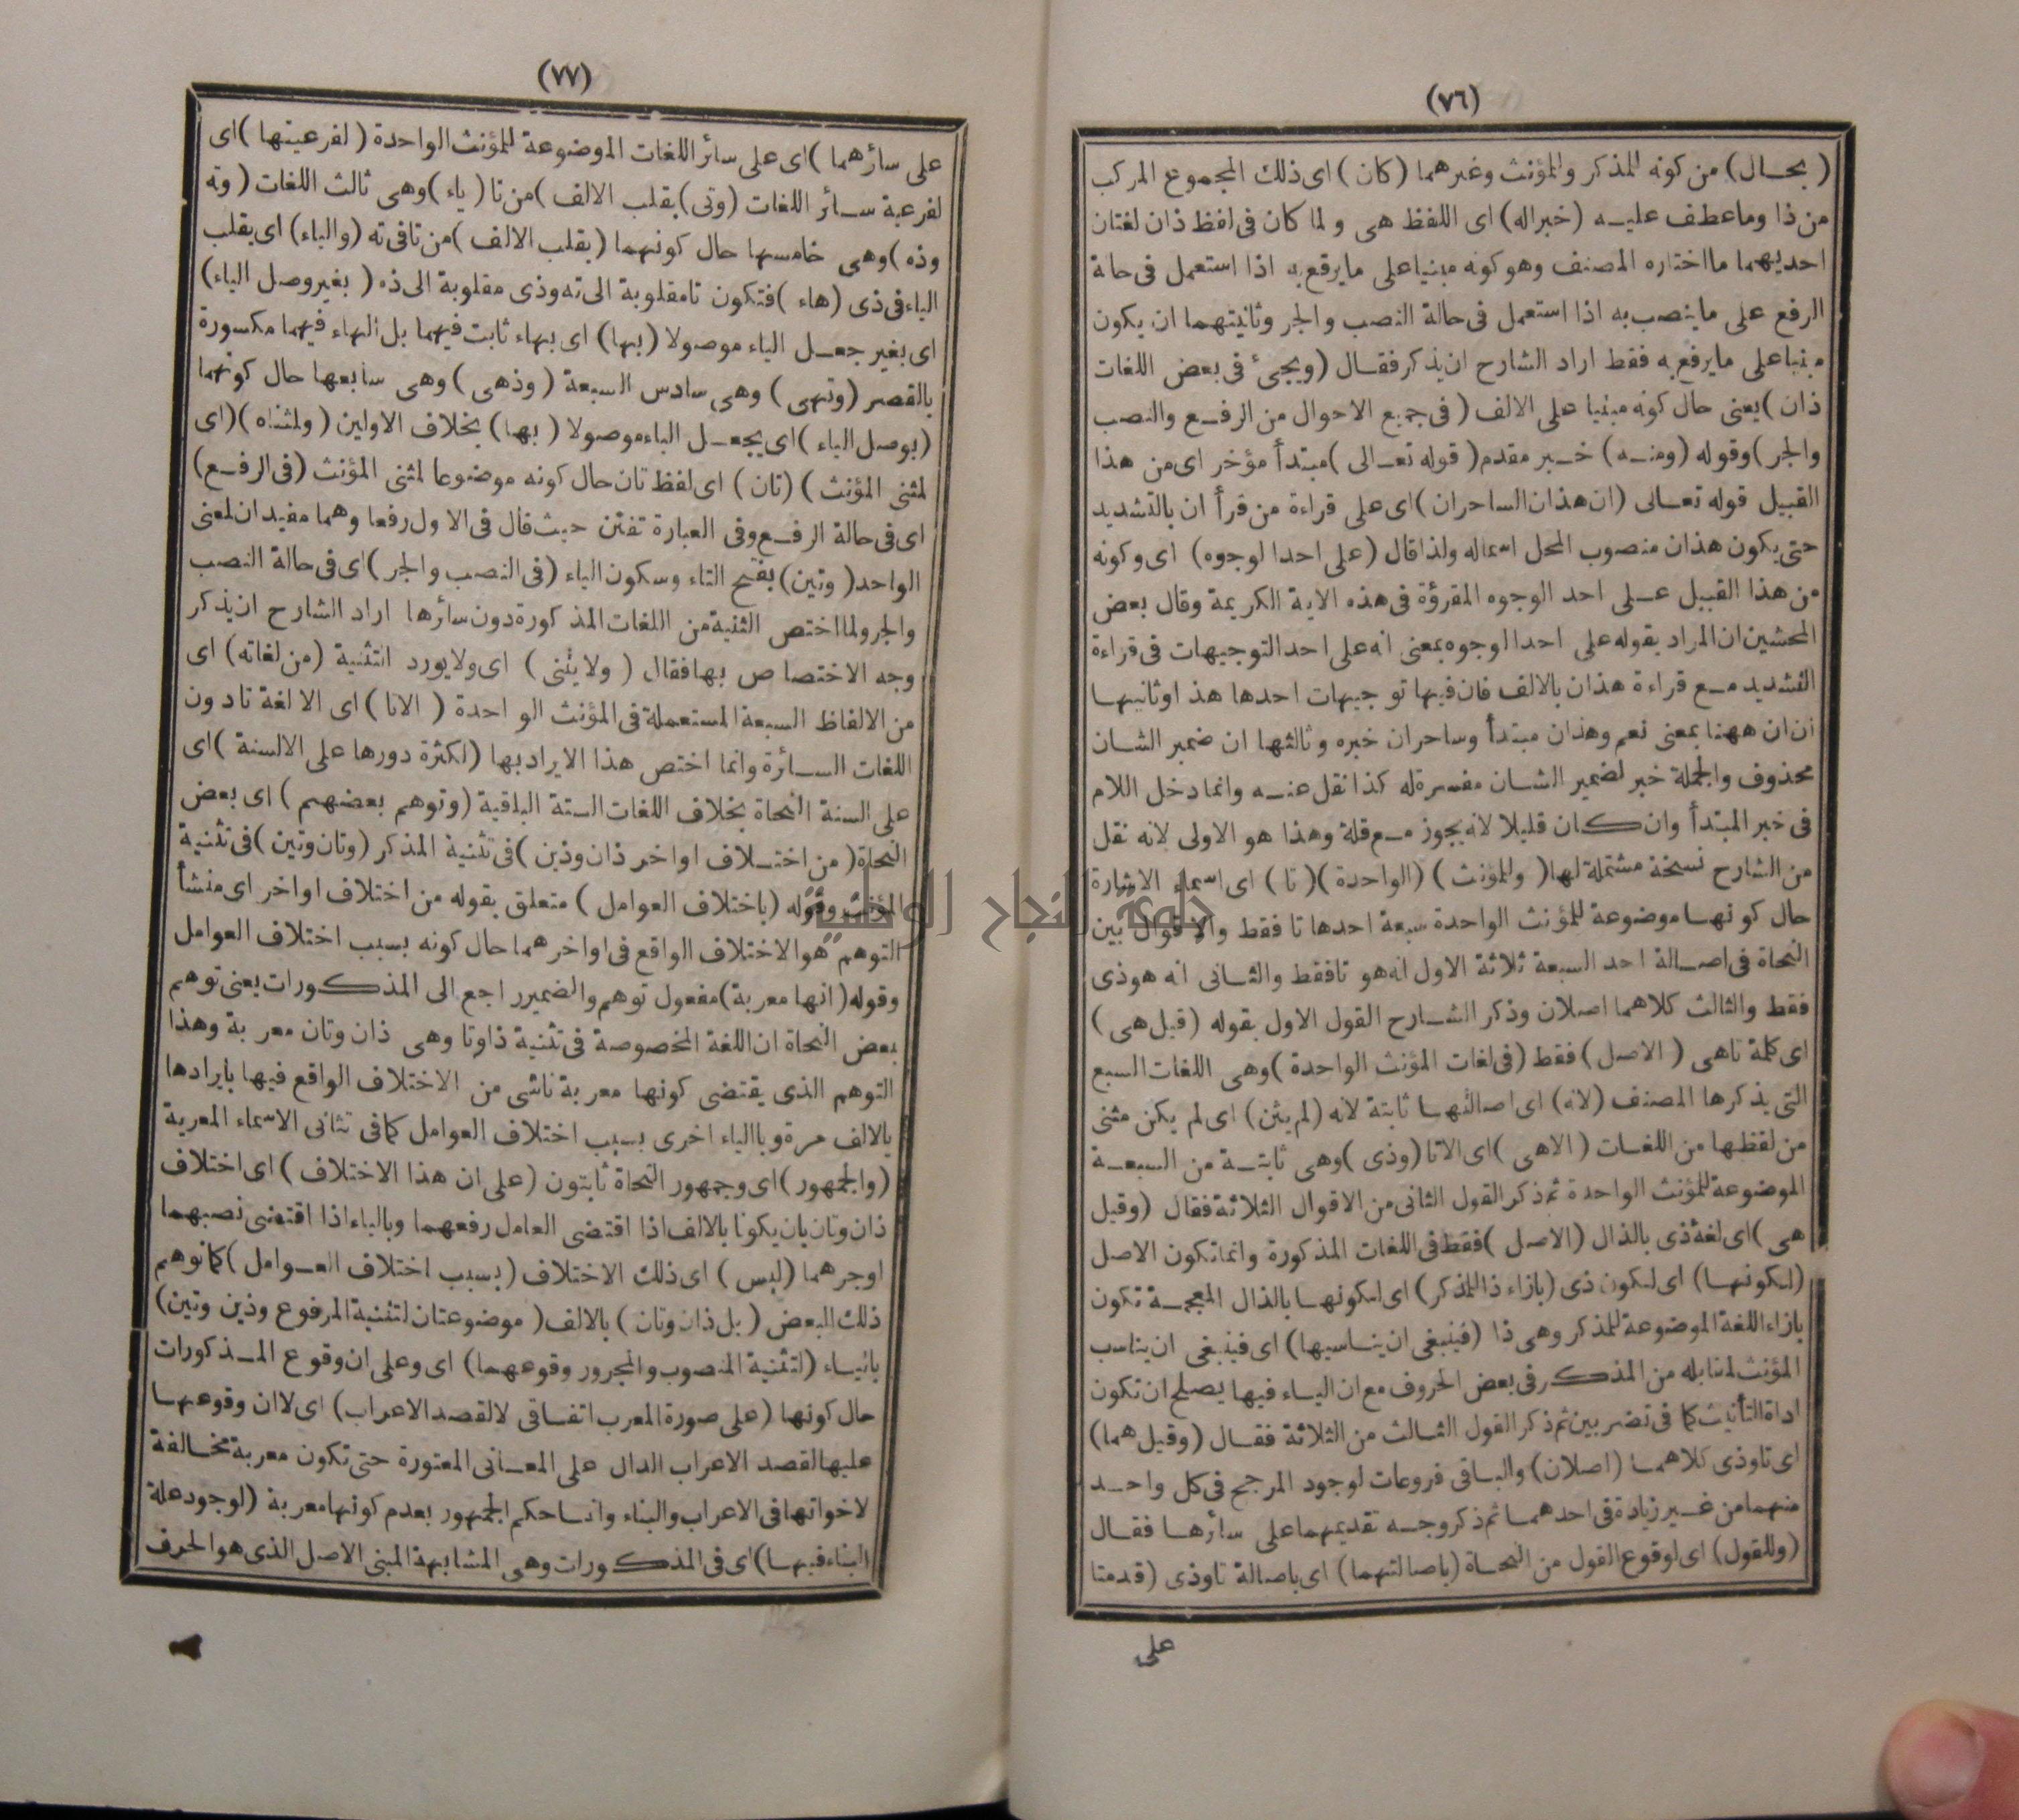 (٧٦)
( بحال) من كونه المذكر والمؤنث وغيرهما (كان) اى ذلك المجموع المركب
من ذا وما عطف عليه (خبراله) اى اللفظ هى ولما كان فى لفظ ذان لغتان
احديهما ما اختاره المصنف وهو كونه مبنيا على ما يرفع به اذا استعمل فى حالة
الرفع على ما ينصب به اذا استعمل فى حالة النصب والجر وثانيتهما ان يكون
مبنيا على ما يرفع به فقط اراد الشارح ان يذكر فقال (ويجئ فى بعض اللغات
ذان) يعنى حال كونه مبنيا على الالف (فى جميع الاحوال من الرفع والنصب
والجر) وقوله (ومنه) خبر مقدم (قوله تعالى) مبتدأ مؤخر اى من هذا
القبيل قوله تعالى (ان هذان لساحران) اى على قراءة من قرأ ان بالتشديد
حتى يكون هذان منصوب المحل اسماله ولذا قال (على احد الوجوه) اى وكونه
من هذا القبيل على احد الوجوه المقروٴة فى هذه الاية الكريمة وقال بعض
المحشين ان المراد بقوله على احد الوجوه بمعنى انه على احد التوجيهات فى قراءة
التشديد مع قراءة هذان بالالف فان فيها توجيهات احدها هذا وثانيها
ان ان ههنا بمعنى نعم وهذان مبتدأ وساحران خبره وثالثها ان ضمير الشان
محذوف والجملة خبر لضمير الشان مفسرة له كذا نقل عنه وانما دخل اللام
فى خبر المبتدأ وان كان قليلا لانه يجوز مع قلة وهذا هو الاولى لانه نقل
من الشارح نسخة مشتملة لها (وللمؤنث) (الواحدة) (تا) اى اسماء الاشارة
حال كونها موضوعة للمؤنث الواحدة سبعة احدها تا فقط والاقوال بين
النحاة فى اصالة احد السبعة ثلاثة الاول انه هو تا فقط والثانى انه هو ذى
فقط والثالث كلاهما اصلان وذكر الشارح القول الاول بقوله (قيل هى)
اى كلمة تا هى (الاصل) فقط (فى لغات المؤنث الواحدة) وهى اللغات السبع
التى يذكرها المصنف (لانه) اى اصالتها ثابتة لانه (لم يثن) اى لم يكن مثنى
من لفظها من اللغات (الاهى) اى الا تا (وذى) وهى ثابتة من السبعة
الموضوعة للمؤنث الواحدة ثم ذكر القول الثانى من الاقوال الثلاثة فقال (وقيل
هى) اى لغة ذى بالذال (الاصل) فقط فى اللغات المذكورة وانما تكون الاصل
(لكونها) اى لكون ذى (بازاء ذا للمذكر) اى لكونها بالذال المعجمة تكون
بازاء اللغة الموضوعة للمذكر وهى ذا (فينبغى ان يناسبها) اى فينبغى ان يناسب
المؤنث لمقابله من المذكر فى بعض الحروف مع ان الياء فيها يصلح ان تكون
اداة التأنيث كما فى تضربين ثم ذكر القول الثالث من الثلاثة فقال (وقيل هما)
اى تا وذى كلاهما (اصلان) والباقى فروعات لوجود المرجح فى كل واحد
منهما من غير زيادة فى احدهما ثم ذكر وجه تقديمهما على سائرها فقال
(وللقول) اى لوقوع القول من النحاة (باصالتهما) اى باصالة تا وذى (قدمتا
على
(٧٧)
على سائرهما) اى على سائر اللغات الموضوعة للمؤنث الواحدة (لفرعيتها) اى
لفرعية سائر اللغات (وتى) بقلب الالف) من تا (ياء) وهى ثالث اللغات (وته
وذه) وهى خامسها حال كونهما (بقلب الالف) من تا فى ته (والياء) اى بقلب
الياء فى ذى (هاء) فتكون تا مقلوبة الى ته وذى مقلوبة الى ذه (بغير وصل الياء)
اى بغير جعل الياء موصولا (بها) اى بهاء ثابت فيهما بل الهاء فيهما مكسورة
بالقصر (وتهى) وهى سادس السبعة (وذهى) وهى سابعها حال كونهما
(بوصل الياء) اى بجعل الياء موصولا (بها) بخلاف الاولين (ولمثناه) (اى
لمثنى المؤنث) (تان) اى لفظ تان حال كونه موضوعا لمثنى المؤنث (فى الرفع)
اى فى حالة الرفع وفى العبارة تفنن حيث قال فى الاول رفعا وهما مفيدان لمعنى
الواحد (وتين) بفتح التاء وسكون الياء (فى النصب والجر) اى فى حالة النصب
والجر ولما اختص التثنية من اللغات المذكورة دون سائرها اراد الشارح ان يذكر
وجه الاختصاص بها فقال (ولا يثنى) اى ولا يورد التثنية (من لغاته) اى
من الالفاظ السبعة المستعملة فى المؤنث الواحدة (الاتا) اى الا لغة تا دون
اللغات السائرة وانما اختص هذا الايراد بها (لكثرة دورها على الالسنة) اى
على السنة النحاة بخلاف اللغات الستة الباقية (وتوهم بعضهم) اى بعض
النحاة (من اختلاف اواخر ذان وذين) فى تثنية المذكر (وتان وتين) فى تثنية
المؤنث وقوله (باختلاف العوامل) متعلق بقوله من اختلاف اواخر اى منشأ
التوهم هو الاختلاف الواقع فى اواخرهما حال كونه بسبب اختلاف العوامل
وقوله (انها معربة) مفعول توهم والضمير راجع الى المذكورات يعنى توهم
بعض النحاة ان اللغة المخصوصة فى تثنية ذا وتا وهى ذان وتان معربة وهذا
التوهم الذى يقتضى كونها معربة ناشى من الاختلاف الواقع فيها بايرادها
بالالف مرة وبالياء اخرى بسبب اختلاف العوامل كما فى تثانى الاسماء المعربة
(والجمهور) اى وجمهور النحاة ثابتون (على ان هذا الاختلاف) اى اختلاف
ذان وتان بان يكونا بالالف اذا اقتضى العامل رفعهما وبالياء اذا اقتضى نصبهما
او جرهما (ليس) اى ذلك الاختلاف (بسبب اختلاف العوامل) كما توهم
ذلك البعض (بل ذان وتان) بالالف (موضوعتان لتثنية المرفوع وذين وتين)
بالياء (لتثنية المنصوب والمجرور وقوعهما) اى وعلى ان وقوع المذكورات
حال كونها (على صورة المعرب اتفاقى لا لقصد الاعراب) اى لا ان وقوعها
عليها لقصد الاعراب الدال على المعانى المعتورة حتى تكون معربة مخالفة
لاخواتها فى الاعراب والبناء وانما حكم الجمهور بعدم كونها معربة (لوجود علة
البناء فيها) اى فى المذكورات وهى المشابهة المبنى الاصل الذى هو الحرف